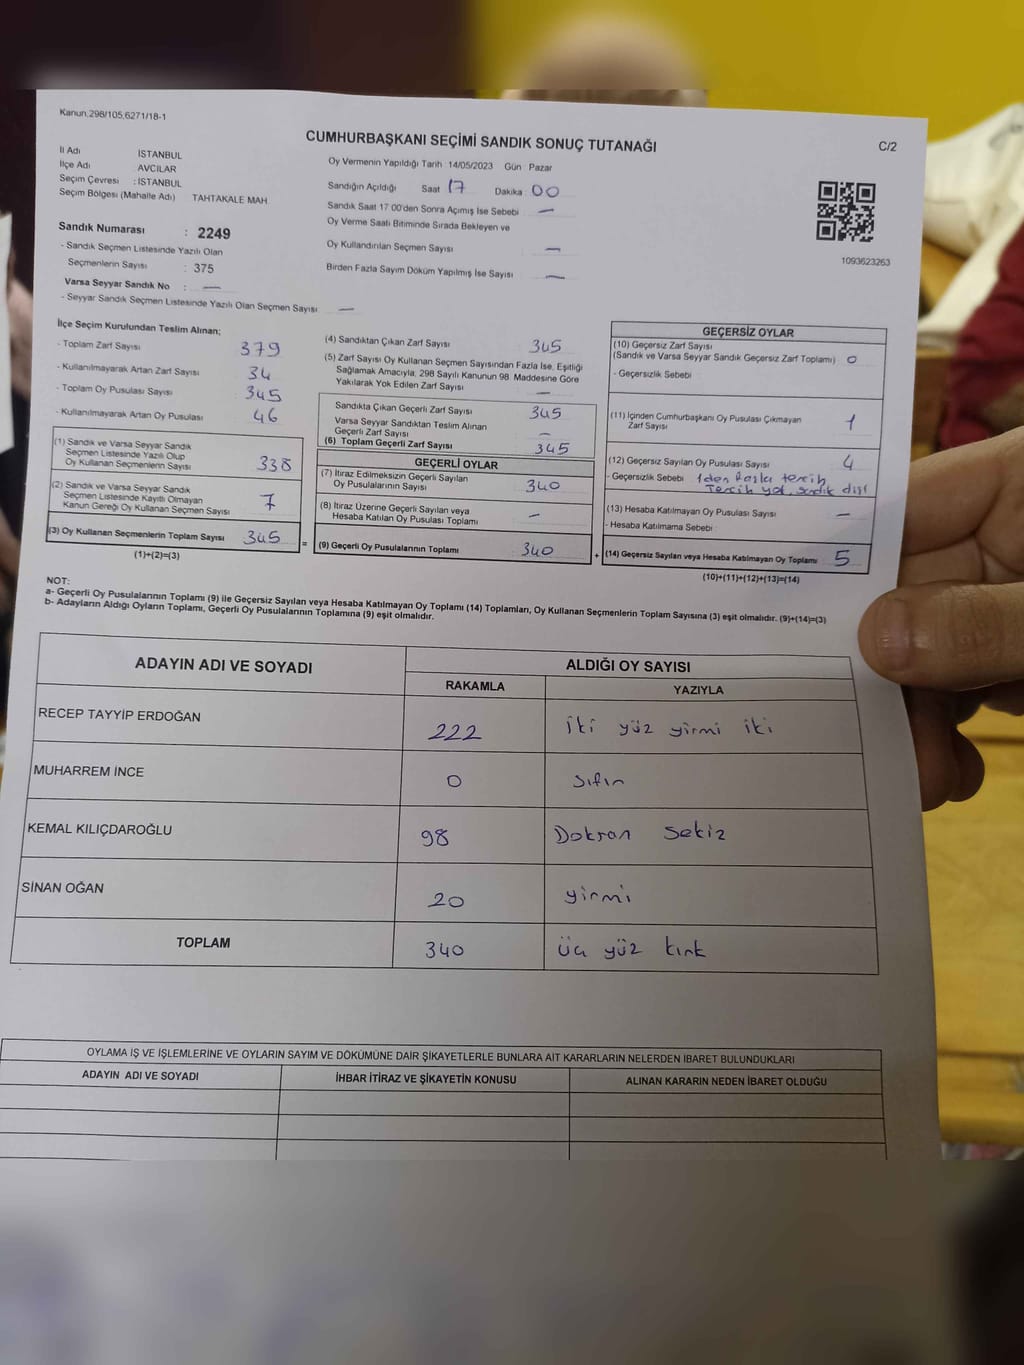 Kanun;298/105,6271/18-1
CUMHURBAŞKANI SEÇİMİ SANDIK SONUÇ TUTANAĞI
C/2
İl Adı İSTANBUL
İlçe Adı AVCILAR
Seçim Çevresi : İSTANBUL
Seçim Bölgesi (Mahalle Adı) TAHTAKALE MAH
Sandık Numarası : 2249
- Sandık Seçmen Listesinde Yazılı Olan
Seçmenlerin Sayısı : 375
Varsa Seyyar Sandık No : —
- Seyyar Sandık Seçmen Listesinde Yazılı Olan Seçmen Sayısı —
Oy Vermenin Yapıldığı Tarih 14/05/2023 Gün Pazar
Sandığın Açıldığı Saat 17 Dakika : 00
Sandık Saat 17 00'den Sonra Açımış İse Sebebi —
Oy Verme Saati Bitiminde Sırada Bekleyen ve
Oy Kullandırılan Seçmen Sayısı —
Birden Fazla Sayım Döküm Yapılmış İse Sayısı —
1093623263
İlçe Seçim Kurulundan Teslim Alınan;
- Toplam Zarf Sayısı 379
- Kullanılmayarak Artan Zarf Sayısı 34
- Toplam Oy Pusulası Sayısı 345
- Kullanılmayarak Artan Oy Pusulası 46
(1) Sandık ve Varsa Seyyar Sandık
Seçmen Listesinde Yazılı Olup
Oy Kullanan Seçmenlerin Sayısı 338
(2) Sandık ve Varsa Seyyar Sandık
Seçmen Listesinde Kayıtlı Olmayan
Kanun Gereği Oy Kullanan Seçmen Sayısı 7
(3) Oy Kullanan Seçmenlerin Toplam Sayısı 345
(1)+(2)=(3)
(4) Sandıktan Çıkan Zarf Sayısı 345
(5) Zarf Sayısı Oy Kullanan Seçmen Sayısından Fazla İse, Eşitliği
Sağlamak Amacıyla, 298 Sayılı Kanunun 98. Maddesine Göre
Yakılarak Yok Edilen Zarf Sayısı —
Sandıkta Çıkan Geçerli Zarf Sayısı 345
Varsa Seyyar Sandıktan Teslim Alınan
Geçerli Zarf Sayısı —
(6) Toplam Geçerli Zarf Sayısı 345
GEÇERLİ OYLAR
(7) İtiraz Edilmeksizin Geçerli Sayılan
Oy Pusulalarının Sayısı 340
(8) İtiraz Üzerine Geçerli Sayılan veya
Hesaba Katılan Oy Pusulası Toplamı —
= (9) Geçerli Oy Pusulalarının Toplamı 340
GEÇERSİZ OYLAR
(10) Geçersiz Zarf Sayısı
(Sandık ve Varsa Seyyar Sandık Geçersiz Zarf Toplamı) 0
- Geçersizlik Sebebi
(11) İçinden Cumhurbaşkanı Oy Pusulası Çıkmayan
Zarf Sayısı 1
(12) Geçersiz Sayılan Oy Pusulası Sayısı 4
- Geçersizlik Sebebi 1den fazla tercih
Tercih yok, sandık dışı
(13) Hesaba Katılmayan Oy Pusulası Sayısı —
- Hesaba Katılmama Sebebi :
+ (14) Geçersiz Sayılan veya Hesaba Katılmayan Oy Toplamı 5
(10)+(11)+(12)+(13)=(14)
NOT:
a- Geçerli Oy Pusulalarının Toplamı (9) ile Geçersiz Sayılan veya Hesaba Katılmayan Oy Toplamı (14) Toplamları, Oy Kullanan Seçmenlerin Toplam Sayısına (3) eşit olmalıdır. (9)+(14)=(3)
b- Adayların Aldığı Oyların Toplamı, Geçerli Oy Pusulalarının Toplamına (9) eşit olmalıdır.
ADAYIN ADI VE SOYADI ALDIĞI OY SAYISI
RAKAMLA YAZIYLA
RECEP TAYYİP ERDOĞAN 222 iki yüz yirmi iki
MUHARREM İNCE 0 Sıfır
KEMAL KILIÇDAROĞLU 98 Doksan sekiz
SİNAN OĞAN 20 yirmi
TOPLAM 340 üç yüz kırk
OYLAMA İŞ VE İŞLEMLERİNE VE OYLARIN SAYIM VE DÖKÜMÜNE DAİR ŞİKAYETLERLE BUNLARA AİT KARARLARIN NELERDEN İBARET BULUNDUKLARI
ADAYIN ADI VE SOYADI İHBAR İTİRAZ VE ŞİKAYETİN KONUSU ALINAN KARARIN NEDEN İBARET OLDUĞU